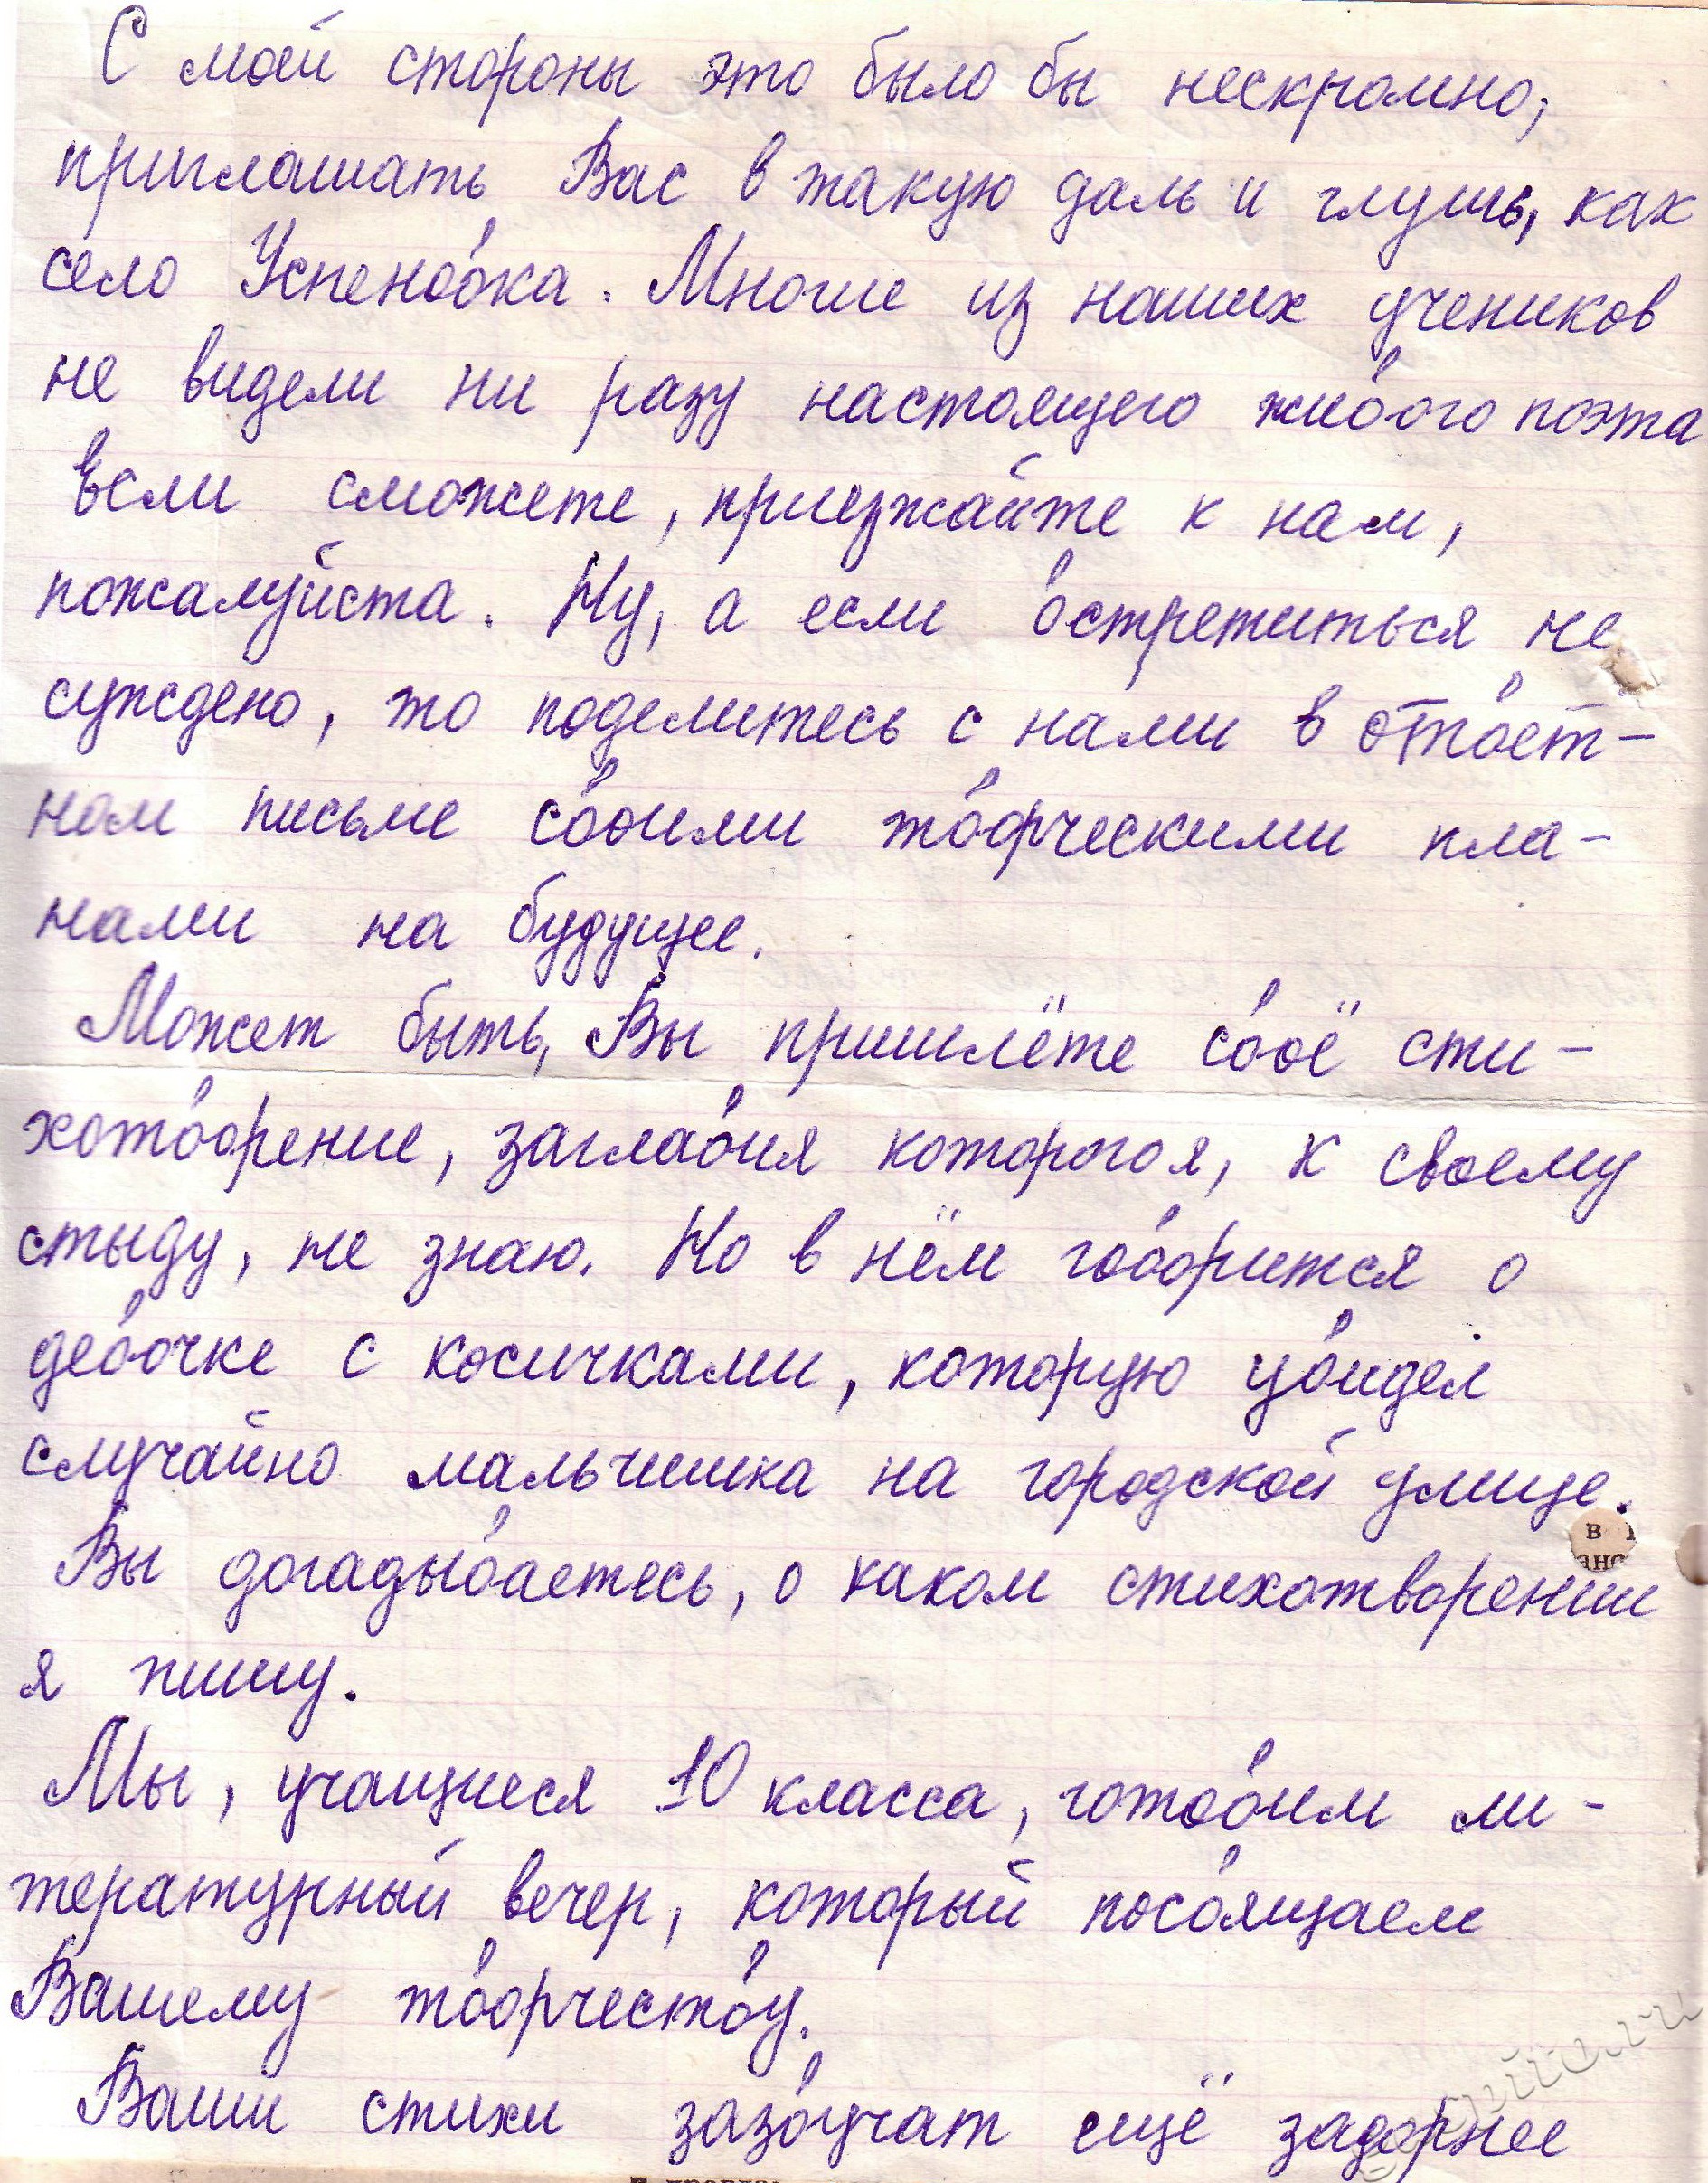 С моей стороны это было бы нескромно,
приглашать Вас в такую даль и глушь, как
село Успеновка. Многие из наших учеников
не видели ни разу настоящего живого поэта
Если сможете, приезжайте к нам,
пожалуйста. Ну, а если встретиться не
суждено, то поделитесь с нами в ответ-
ном письме своими творческими пла-
нами на будущее.
Может быть, Вы пришлёте своё сти-
хотворение, заглавия которого я, к своему
стыду, не знаю. Но в нём говорится о
девочке с косичками, которую увидел
случайно мальчишка на городской улице.
в
Вы догадываетесь, о каком стихотворении
я пишу.
Мы, учащиеся 10 класса, готовим ли-
тературный вечер, который посвящаем
Вашему творчеству.
Ваши стихи зазвучат ещё задорнее